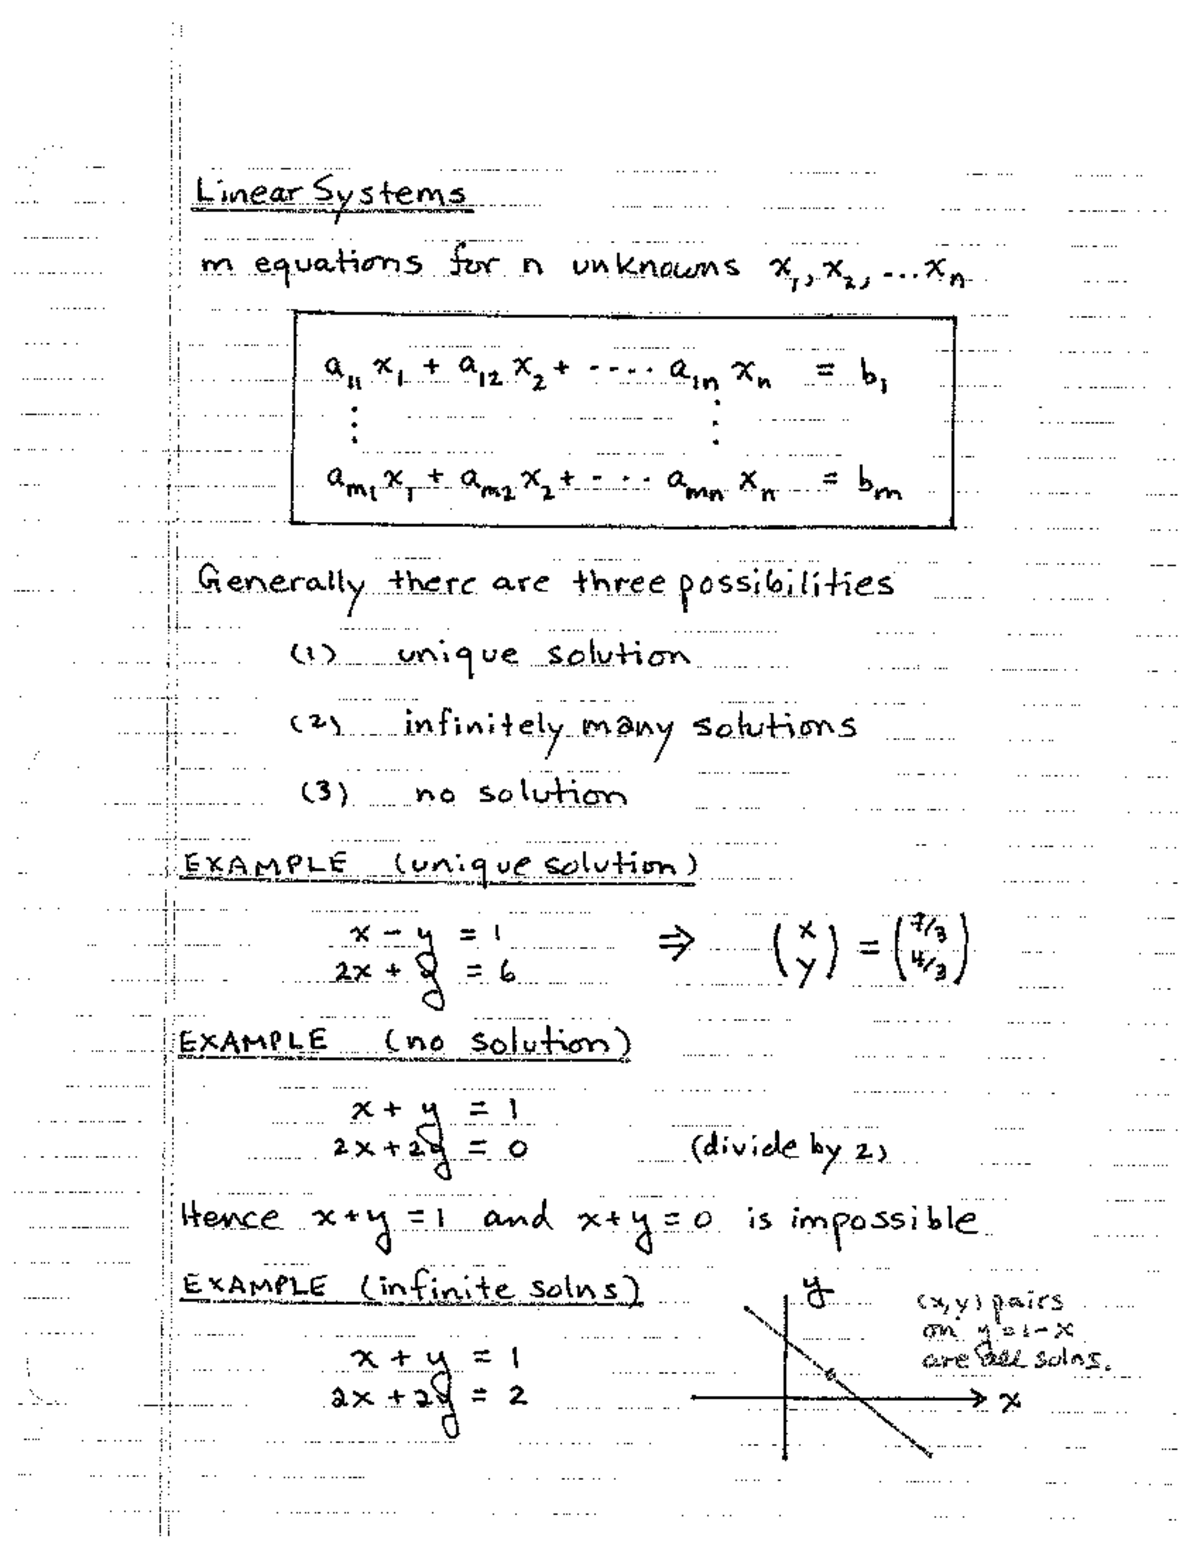 Linear Systems
m equations for n unknowns x₁, x₂, ... xₙ
a₁₁ x₁ + a₁₂ x₂ + ---- a₁ₙ xₙ = b₁
⋮ ⋮
aₘ₁ x₁ + aₘ₂ x₂ + - - - aₘₙ xₙ = bₘ
Generally there are three possibilities
(1) unique solution
(2) infinitely many solutions
(3) no solution
EXAMPLE (unique solution)
x - y = 1 ⇒ (x y) = (7/3 4/3)
2x + y = 6
EXAMPLE (no solution)
x + y = 1
2x + 2y = 0 (divide by 2)
Hence x+y = 1 and x+y = 0 is impossible
EXAMPLE (infinite solns)
x + y = 1
2x + 2y = 2
y
x
(x,y) pairs
on y=1-x
are all solns.